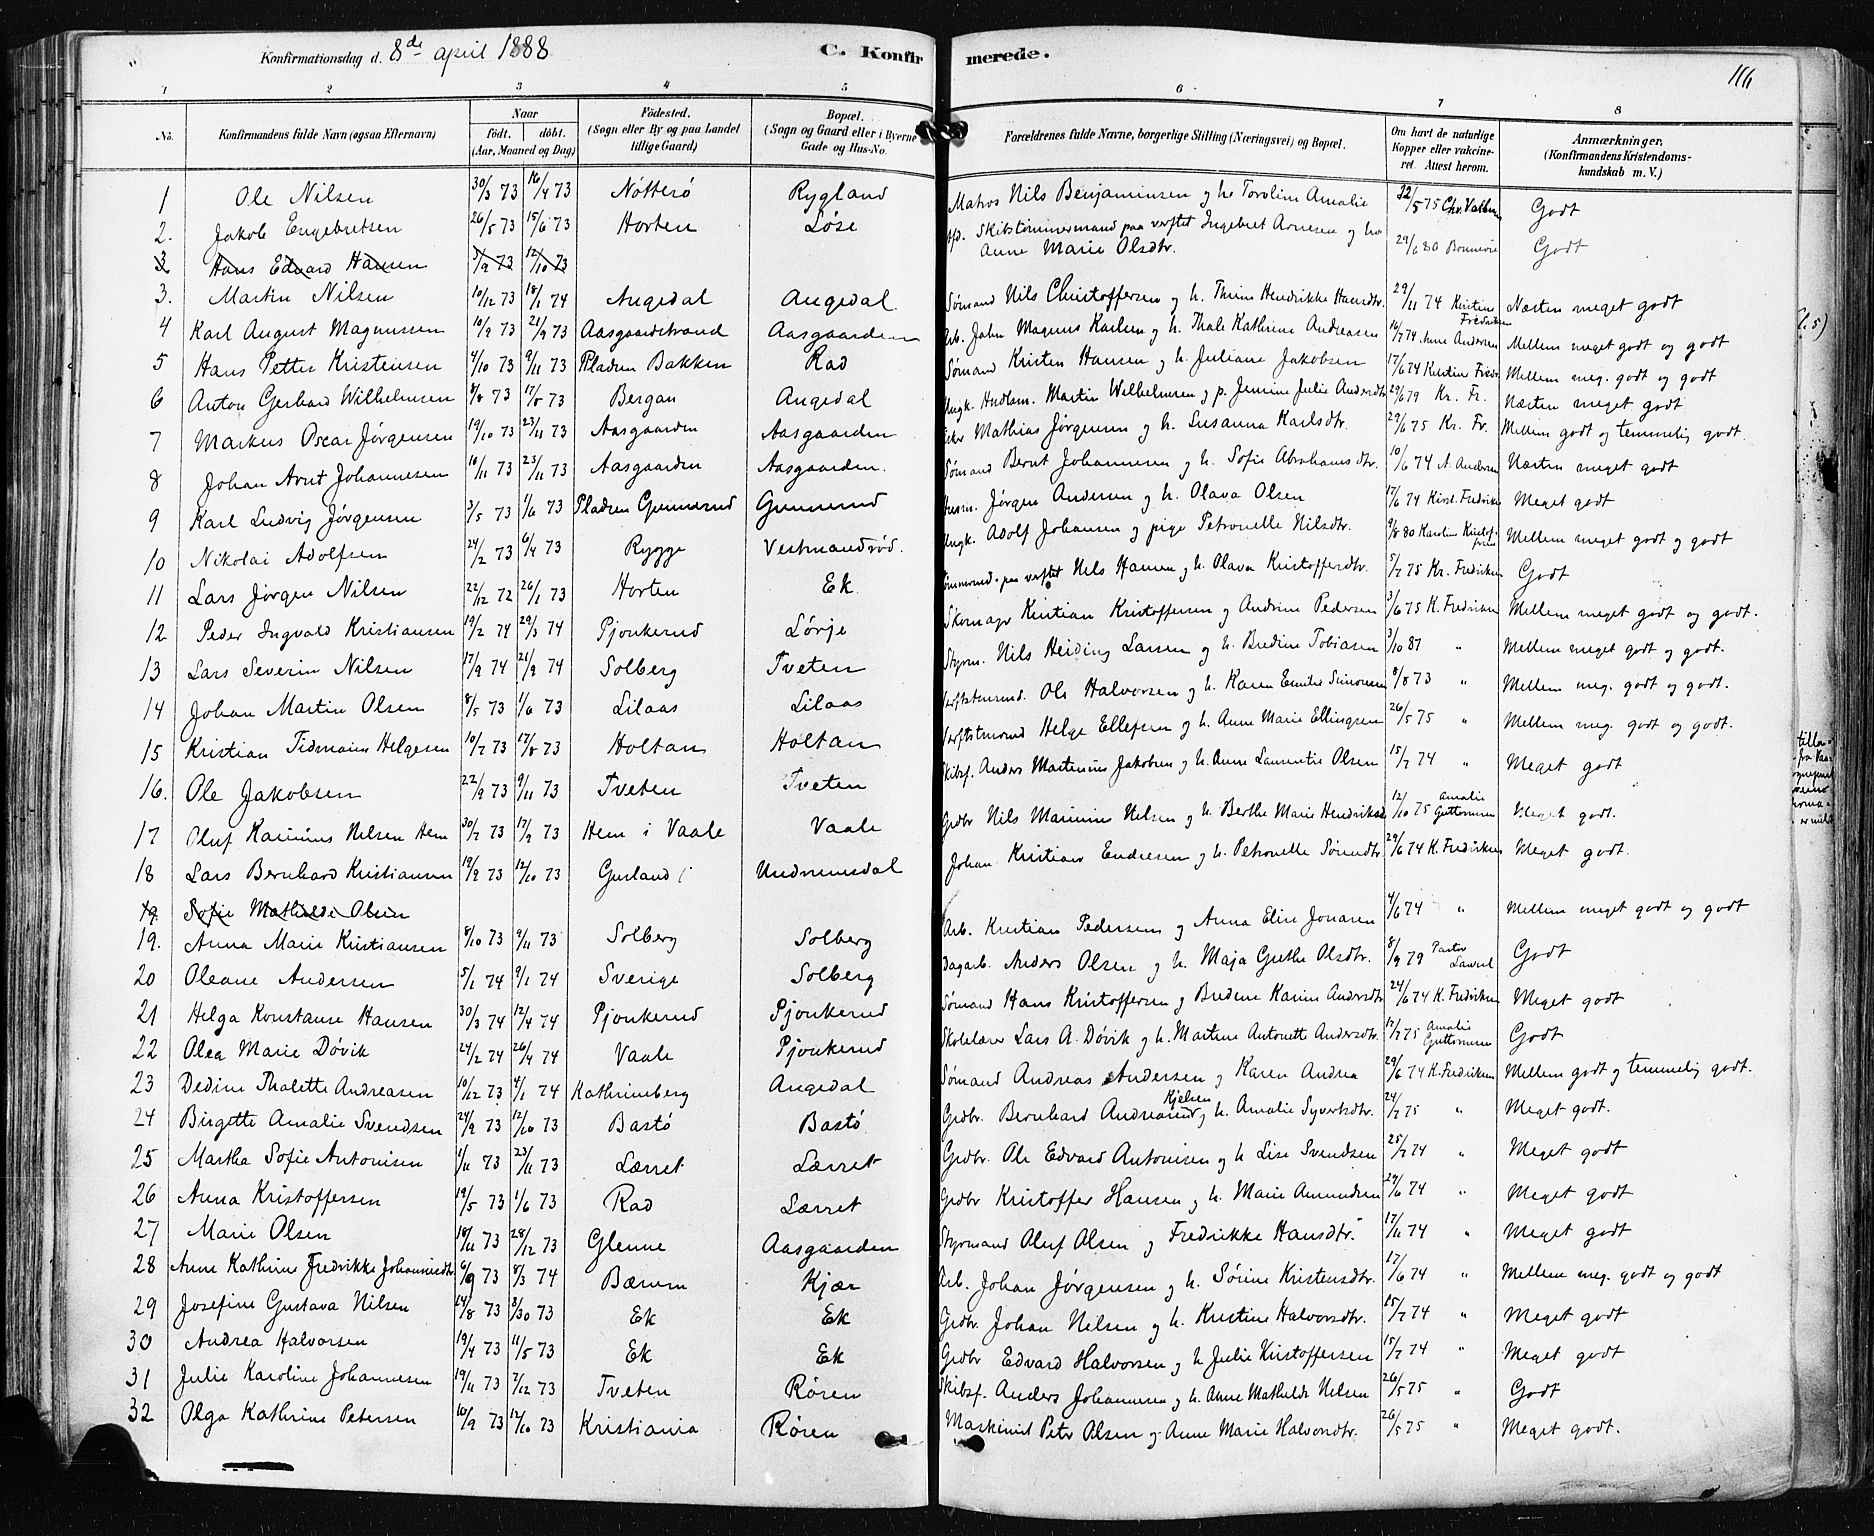 Konfirmationsdag d. 8de april 1888 C. Konfirmerede. 116
1 2 3 4 5 6 7 8
No. Konfirmandens fulde Navn (ogsaa Efternavn) Naar født. døbt. (Aar, Maaned og Dag) Fødested. (Sogn eller By og paa Landet tillige Gaard) Bopæl. (Sogn og Gaard eller i Byerne Gade og Hus-No. Forældrenes fulde Navne, borgerlige Stilling (Næringsvei) og Bopæl. Om havt de naturlige Kopper eller vakcineret. Attest herom. Anmærkninger. (Konfirmandens Kristendomskundskab m. V.)
1 Ole Nilsen 30/3 73 16/4 73 Nötterö Rygland Matros Nils Benjaminsen og h. Toroline Amalie /5 75 Chr. Godt
2. Jakob Engebretsen 26/5 73 15/6 73 Horten Løse Skibstømmermand paa verftet Ingebret Arnesen og h. Anne Marie Olsdtr. 29/6 80 Godt
3 Hans Edvard Hansen 5/9 73 12/10 73
3. Martin Nilsen 10/12 73 18/1 74 Augedal Augedal Sømand Nils Christoffersen og h. Thrine Hendrikke Hansdtr. 29/11 74 Kristine Fredriksen Næsten meget godt
4 Karl August Magnussen 10/9 73 21/9 73 Aasgaardstrand Aasgaarden Arb. John Magnus Karlsen og h. Thale Kathrine Andreasen 16/7 74 Anne Andersen Mellem meget godt og godt
5 Hans Petter Kristensen 4/10 73 9/11 73 Pladsen Bakken Rad Sømand Kristen Hansen og h. Juliane Jakobsen 17/6 74 Kristine Fredr. Mellem meg. godt og godt
6 Anton Gerhard Wilhelmsen 8/8 73 17/8 73 Bergan Augedal Ungk. Martin Wilhelmsen og p. Jensine Julie Andersdtr 29/6 79 Kr. Fr. Næsten meget godt
7 Markus Oscar Jørgensen 19/10 73 23/11 73 Aasgaarden Aasgaarden Mathias Jørgensen og h. Susanna Karlsdtr. 29/6 75 Kr. Fr. Mellem godt og temmelig godt.
8 Johan Arnt Johannesen 10/11 73 23/11 73 Aasgaarden Aasgaarden. Sømand Bernt Johannesen og h. Sofie Abrahamsdtr. 10/6 74 A. Andersen Næsten meget godt
9 Karl Ludvig Jørgensen 3/5 73 1/6 73 Pladsen Gunnerud Gunnerud Jørgen Andersen og h. Olava Olsen 17/6 74 Krist. Fredriksen Meget godt
10 Nikolai Adolfsen 24/2 73 6/4 73 Rygge Vestmandrød. Ungk. Adolf Johansen og pige Petronelle Nilsdtr. 9/8 80 Karoline Kristoffersen Mellem meget godt og godt
11 Lars Jørgen Nilsen 22/12 72 26/1 73 Horten Ek paa verftet Nils Hansen og h. Olava Kristoffersdtr. 5/7 75 Kr. Fredriksen Godt
12 Peder Ingvald Kristiansen 19/2 74 29/3 74 Pjonkerud Lörje Skomager Kristian Kristoffersen og Andrine Pedersen 3/6 75 K. Fredriksen Mellem meget godt og godt.
13 Lars Severin Nilsen 17/9 74 21/9 74 Solberg Tveten Styrm. Nils Heiding Larsen og h. Bredine Tobiasen 3/10 87 " Mellem meget godt og godt.
14 Johan Martin Olsen 8/5 73 1/6 73 Lilaas Lilaas Ole Halvorsen og h. Karen Emilie Simonsen 8/8 73 " Mellem meg. godt og godt.
15 Kristian Tidmann Helgesen 10/7 73 17/8 73 Holtan Holtan Helge Ellefsen og h. Anne Marie Ellingsen 26/5 75 " Mellem meg. godt og godt.
16. Ole Jakobsen 22/9 73 9/11 73 Tveten Tveten Skibsf. Anders Martinius Jakobsen og h. Anne Laurentie Olsen 15/7 74 " Meget godt
17 Oluf Karinius Nilsen Hem 30/7 73 17/9 73 Hem i Vaale Vaale Grdbr Nils Marinius Nilsen og h. Berthe Marie Hendriksd 12/10 75 Amalie Guttormsen Meget godt.
18 Lars Bernhard Kristiansen 19/9 73 12/10 73 Gusland Undrumsdal Johan Kristian Endresen og h. Petronelle Sørensdtr 29/6 74 K. Fredriksen Meget godt.
19. Sofie Mathilde Olsen
19. Anna Marie Kristiansen 8/10 73 9/11 73 Solberg Solberg Arb. Kristian Pedersen og Anna Elise Jonasen 4/6 74 " Mellem meget godt og godt
20 Oleane Andersen 5/1 74 9/1 74 Sverige Solberg Dagarb. Anders Olsen og h. Maja Grethe Olsdtr. 8/9 79 Pastor Godt
21 Helga Konstanse Hansen 30/3 74 12/4 74 Pjonkerud Pjonkerud Sømand Hans Kristoffersen og Bredine Karine Andersdtr 24/6 74 K. Fredriksen Meget godt
22 Olea Marie Dövik 24/2 74 26/4 74 Vaale Pjonkerud Skolelærer Lars A. Dövik og h. Martine Antonette Andersdtr. 12/7 75 Amalie Guttormsen Godt
23 Dedine Thalette Andreasen 10/12 73 4/1 74 Kathrineberg Augedal Sømand Andreas Andersen og Karen Andrea 29/6 74 K. Fredriksen Mellem godt og temmelig godt.
24 Birgette Amalie Svendsen 24/9 73 12/10 73 Bastö Bastö Grdbr. Bernhard Andreas Kjelsen og h. Amalie Syvertsdtr. 24/7 75 " Meget godt.
25 Martha Sofie Antonisen 1/11 73 23/11 73 Lærret Lærret Grdbr. Ole Edvard Antonisen og h Lise Svendsen 25/7 74 " Meget godt
26 Anna Kristoffersen 19/5 73 1/6 73 Rad Lærret Grdbr Kristoffer Hansen og h. Marie Amundsen 29/6 74 " Meget godt
27 Marie Olsen 18/11 73 28/12 73 Glenne Aasgaarden Styrmand Oluf Olsen og Fredrikke Hansdtr. 17/11 74 " Meget godt
28 Anne Kathrine Fredrikke Johannesdtr 6/9 73 8/3 74 Bærum Kjær Arb. Johan Jørgensen og h. Sörine Kristensdtr. 17/6 74 " Mellem meg. godt og godt
29 Josefine Gustava Nilsen 24/8 73 8/30 73 Ek Ek Grdbr. Johan Nilsen og h. Kristine Halvorsdtr. 15/7 74 " Meget godt
30 Andrea Halvorsen 19/4 73 11/5 73 Ek Ek Grdbr Edvard Halvorsen og h Julie Kristoffersen 15/7 74 " Meget godt
31 Julie Karoline Johannesen 19/11 73 7/12 73 Tveten Røren Skibsf. Anders Johannesen og h. Anne Mathilde Nilsen 26/5 75 " Godt
32 Olga Kathrine Petersen 10/9 73 12/10 73 Kristiania Røren Maskinist Peter Olsen og Anne Marie Halvorsdtr. 26/5 75 " Meget godt.